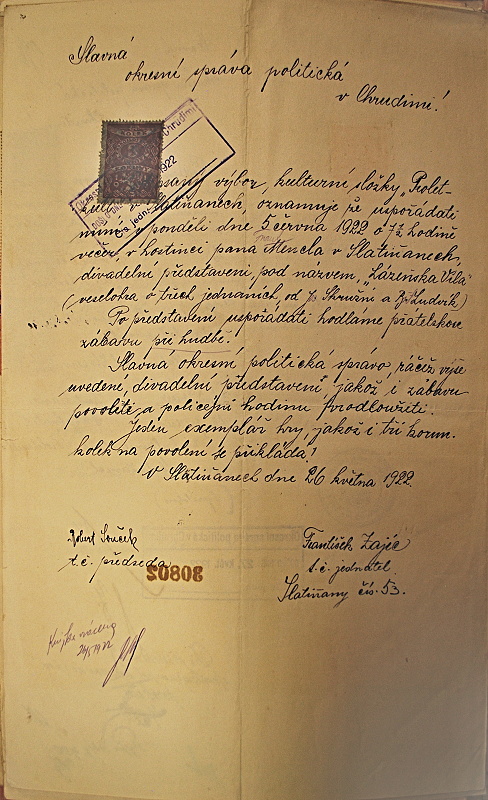 Slavná
okresní správa politická
v Chrudimi!
Chrudimi
1922
výbor, kulturní složky „Prolet-
Slatiňanech oznamuje že uspořádati
míní v pondělí dne 5 června 1922 o ½ hodině
večer, v hostinci pana Mencla v Slatiňanech,
divadelní představení, pod názvem, „Lázeňská Vila“
(veselohra o třech jednáních, od
Po představení uspořádati hodláme přátelskou
zábavu při hudbě!
Slavná okresní politická správo, račiž výše
uvedené, divadelní představení, jakož i zábavu
povoliti, a policejní hodinu prodloužiti.
Jeden exemplář hry, jakož i tří korun.
kolek na povolení se přikládá!
V Slatiňanech dne 26 května 1922.
Robert Souček
t.č. předseda
František Zajíc
t.č. jednatel
Slatiňany čís. 53.
30802